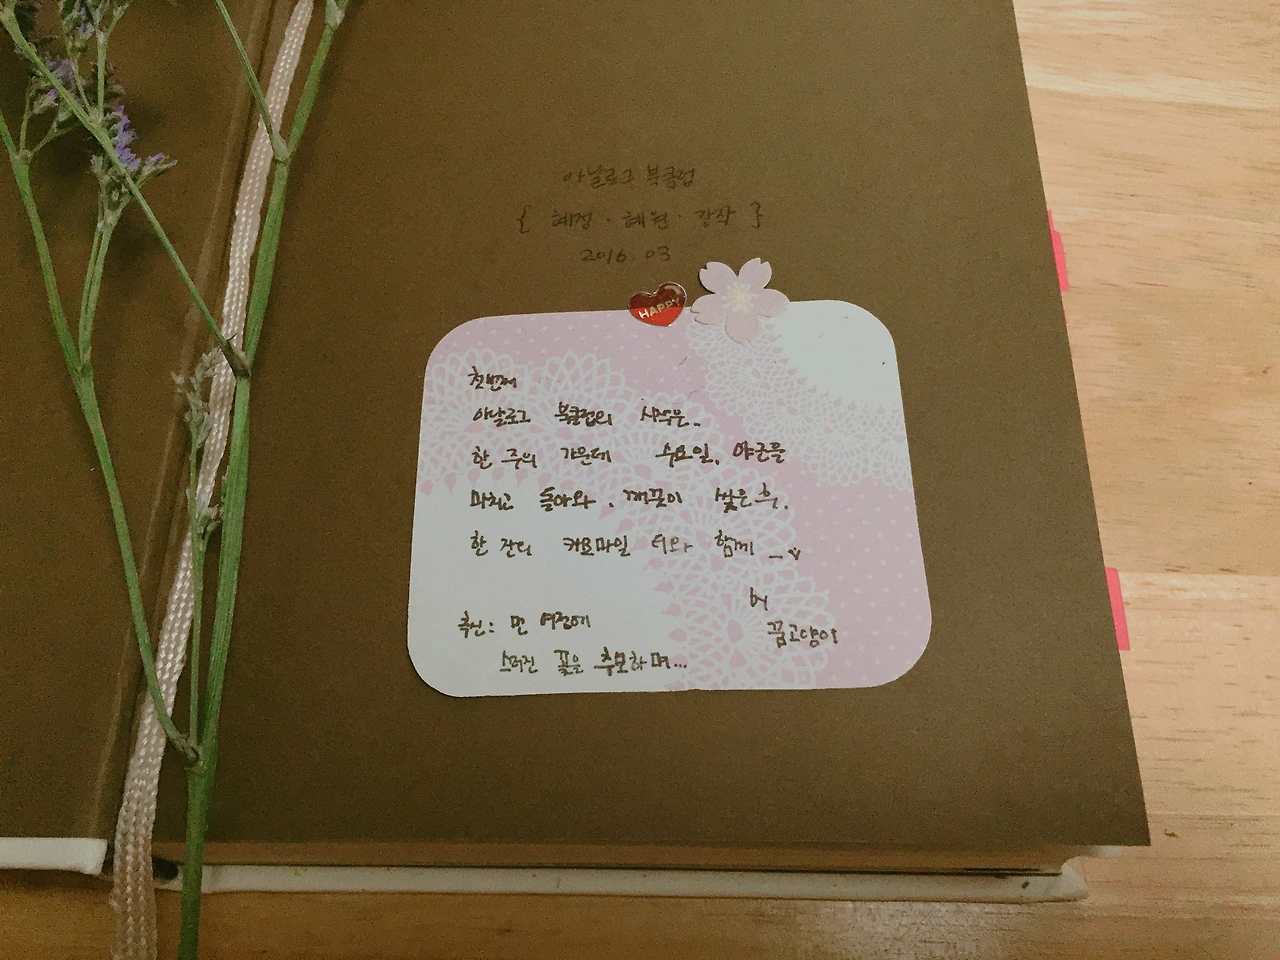 아날로그 북클럽
{ 혜정 · 혜원 · 강작 }
2016. 03
HAPPY
첫번째
아날로그 북클럽의 시작은.
한 주의 가운데 수요일. 야근을
마치고 돌아와. 깨끗이 씻은 후.
한 잔의 캐모마일 티와 함께 _
by
꿈고양이
추신: 먼 여정에
쓰러진 꽃을 추모하며...